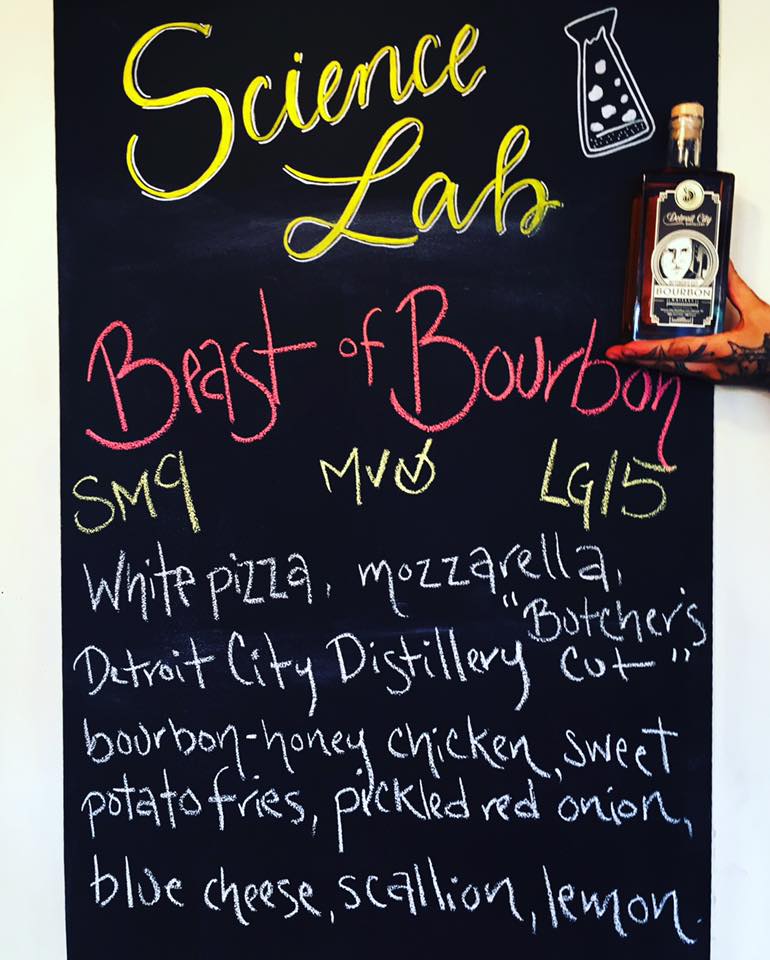 Science
Lab
Detroit City
DISTILLERY
BOURBON
WHISKEY
Beast of Bourbon
SM9 MV LG15
White pizza, mozzarella,
"Butcher's
Detroit City Distillery cut"
bourbon-honey chicken, sweet
potato fries, pickled red onion,
blue cheese, scallion, lemon.